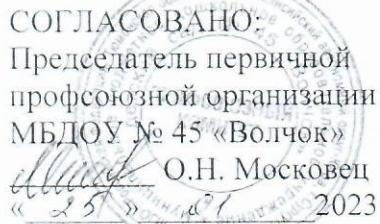 СОГЛАСОВАНО:
Председатель первичной
профсоюзной организации
МБДОУ № 45 «Волчок»
О.Н. Московец
« 25 » 2023